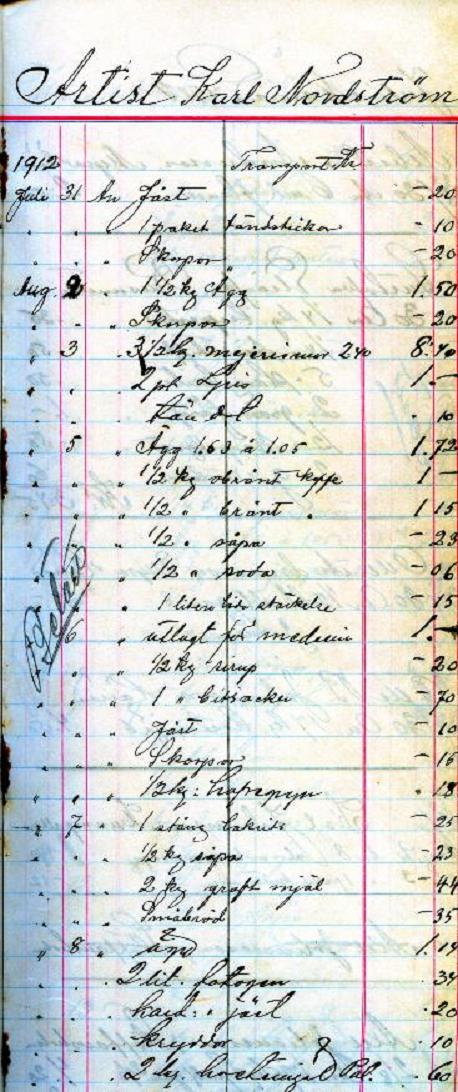 Artist Karl Nordström
1912 Transport Kr
Juli 31 An Jäst - 20
" " " 1 paket tändstickor - 10
" " " Skorpor - 20
Aug 2 " 1 1/2 kg Ägg 1.50
" " " Skorpor - 20
" 3 " 3 1/2 kg. mejerismör 240 8.40
" " " 2 pkt Ljus 1.-
" " " 10
" 5 " Ägg 1.63 à 1.05 1.72
" " " 1/2 kg obränt kaffe 1 -
" " " 1/2 " bränt " 1 15
" " " 1/2 " såpa - 23
" " " 1/2 " soda - 06
" " " 1 liten stärkelse - 15
6 " utlagt för medicin 1.-
" " " 1/2 kg sirup - 20
" " " 1 " bitsocker - 70
" " " Jäst - 10
" " " Skorpor - 15
" " " 1/2 kg: hafregryn . 18
" 7 " 1 stång - 25
" " " 1/2 kg såpa - 23
" " " 2 kg groft mjöl - 44
" " " - 35
" 8 " 1.14
" " " 2 lit. fotogen . 34
" " " jäst . 20
" " " kryddor . 10
" " " 2 kg. . 60
Betalt